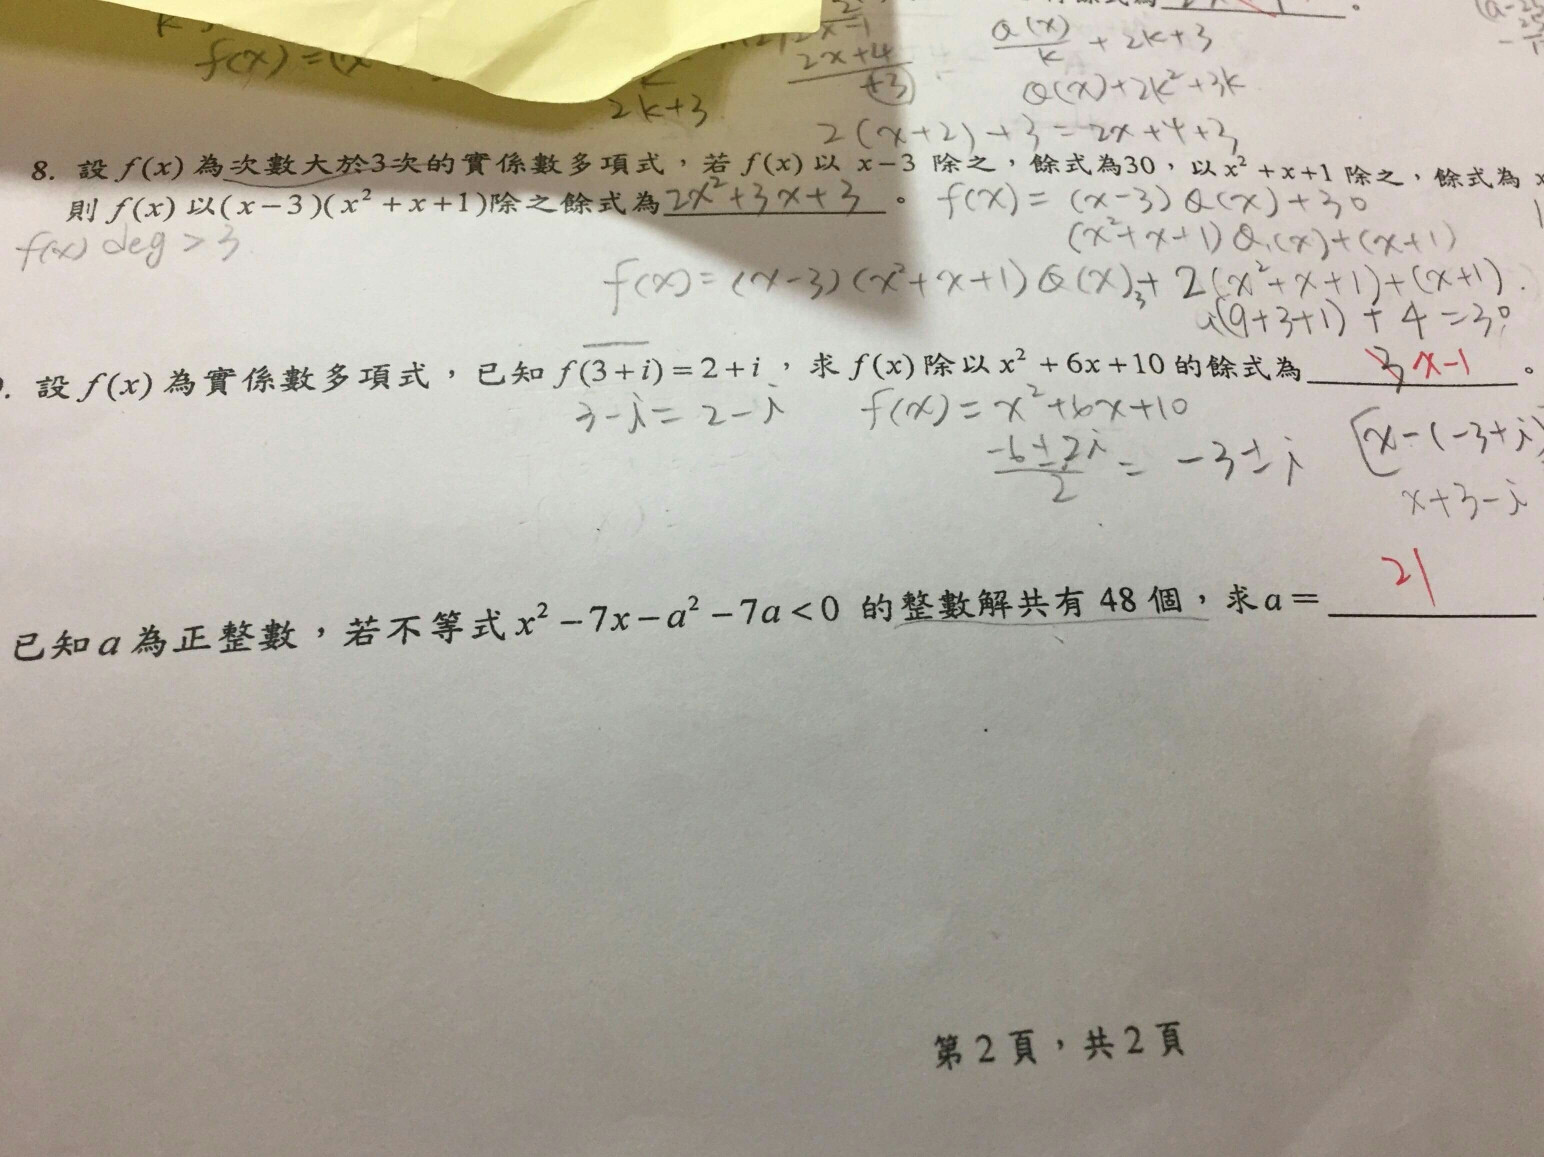 f(x)=(x
2k+3
2x-1
2x+4
+3
Q(x)/k + 2k+3
Q(x)+2k²+3k
2(x+2)+3=2x+4+3
8. 設 f(x) 為次數大於3次的實係數多項式，若 f(x) 以 x-3 除之，餘式為30，以 x²+x+1 除之，餘式為 x
則 f(x) 以(x-3)(x²+x+1)除之餘式為 2x²+3x+3 。 f(x) = (x-3) Q(x)+30
f(x) deg > 3
(x²+x+1) Q₁(x)+(x+1)
f(x)=(x-3)(x²+x+1) Q(x)+ 2(x²+x+1)+(x+1).
3
(9+3+1) + 4 =30
. 設 f(x) 為實係數多項式，已知 f(3+i)=2+i，求 f(x) 除以 x²+6x+10 的餘式為 x-1 。
3-i=2-i
f(x)=x²+6x+10
-6±2i/2 = -3±i
[x-(-3+i)
x+3-i
已知 a 為正整數，若不等式 x²-7x-a²-7a<0 的整數解共有 48 個，求 a= 21
第 2 頁，共 2 頁